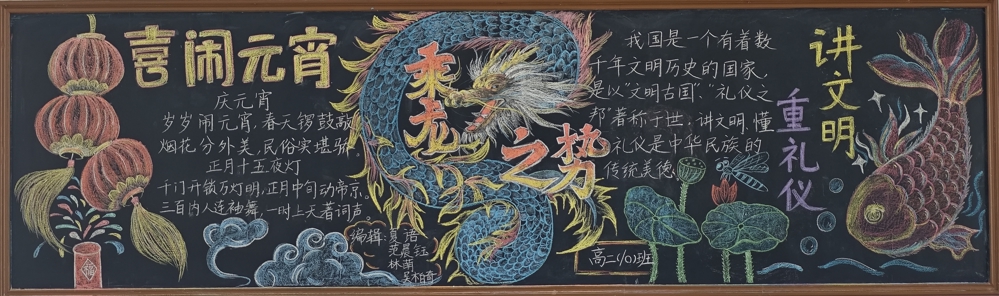 喜闹元宵
庆元宵
岁岁闹元宵,春天锣鼓敲
烟花分外美,民俗实堪骄
正月十五夜灯
千门开锁万灯明,正月中旬动帝京
三百内人连袖舞,一时上天著词声
编辑:
乘龙
之势
我国是一个有着数
千年文明历史的国家,
是以“文明古国”、“礼仪之
邦”著称于世,讲文明,懂
礼仪是中华民族的
传统美德
高二(10)班
讲文明
重礼仪
福